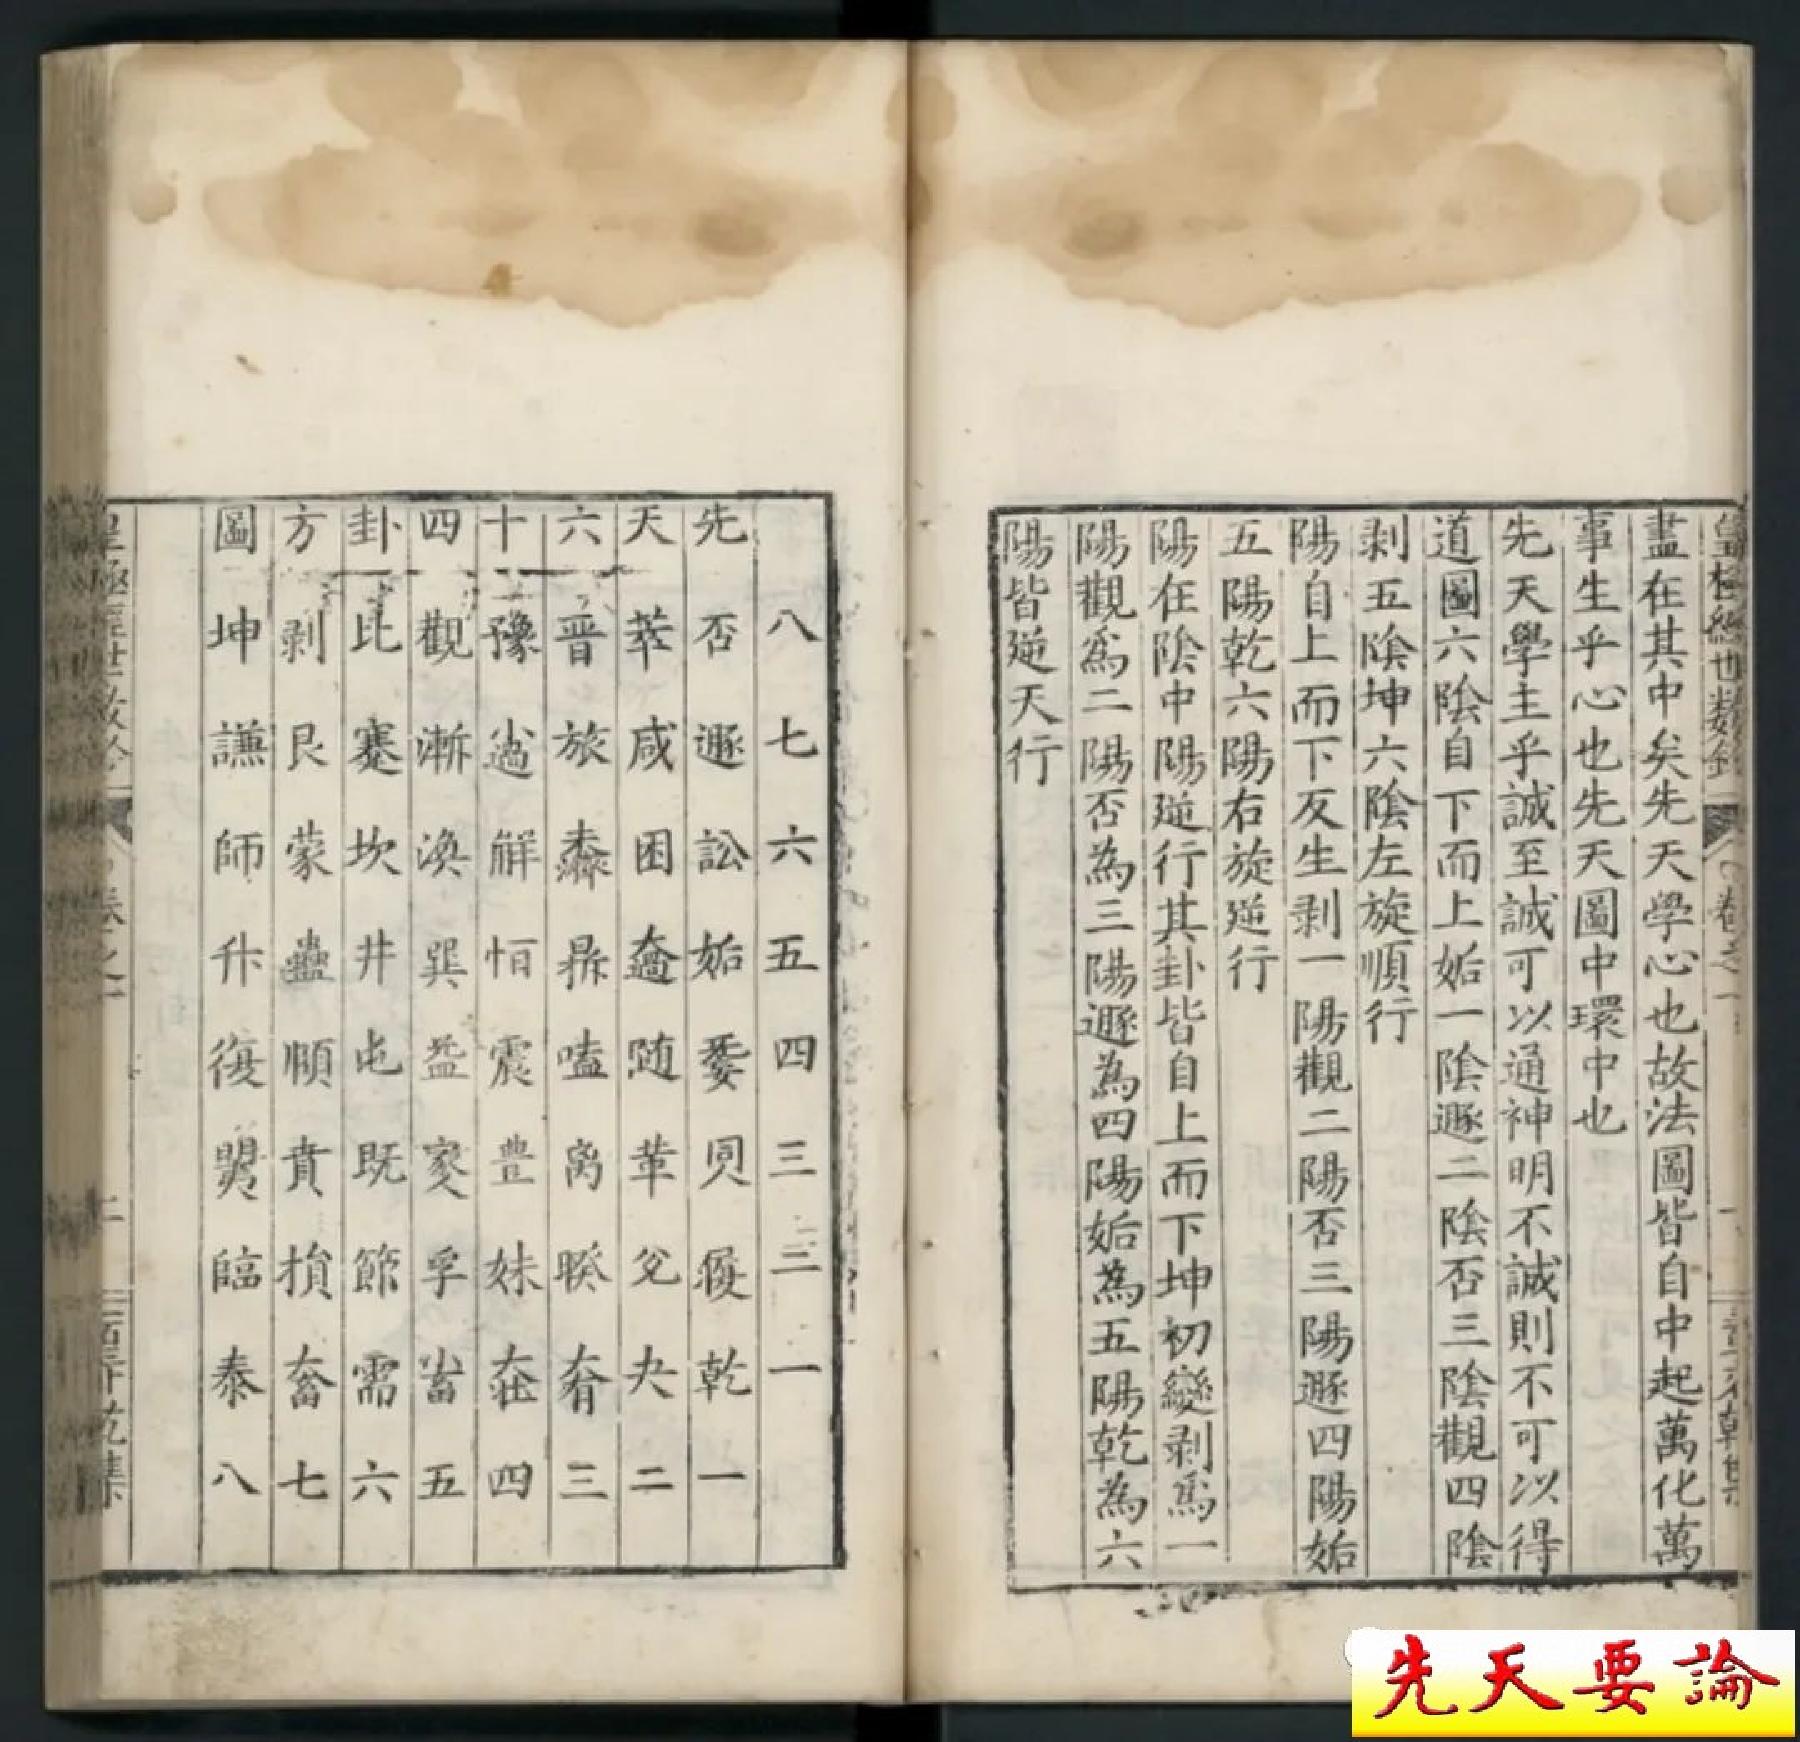 盡在其中矣先天學心也故法圖皆自中起萬化萬
事生乎心也先天圖中環中也
先天學主乎誠至誠可以通神明不誠則不可以得
道圖六陰自下而上姤一陰遯二陰否三陰觀四陰
剥五陰坤六陰左旋順行
陽自上而下反生剥一陽觀二陽否三陽遯四陽姤
五陽乾六陽右旋逆行
陽在陰中陽逆行其卦皆自上而下坤初變剥爲一
陽觀爲二陽否為三陽遯為四陽姤為五陽乾為六
陽皆逆天行
八七六五四三二一
先否遯訟姤无妄同履乾一
天萃咸困大過随革兌夬二
六晉旅未濟鼎嗑离睽大有三
十豫小過觧恒震豊妹大壯四
四觀漸渙巽益家人孚小畜五
卦比蹇坎井屯既節需六
方剥艮蒙蠱頤賁損大畜七
圖坤謙師升復明夷臨泰八
先天要論